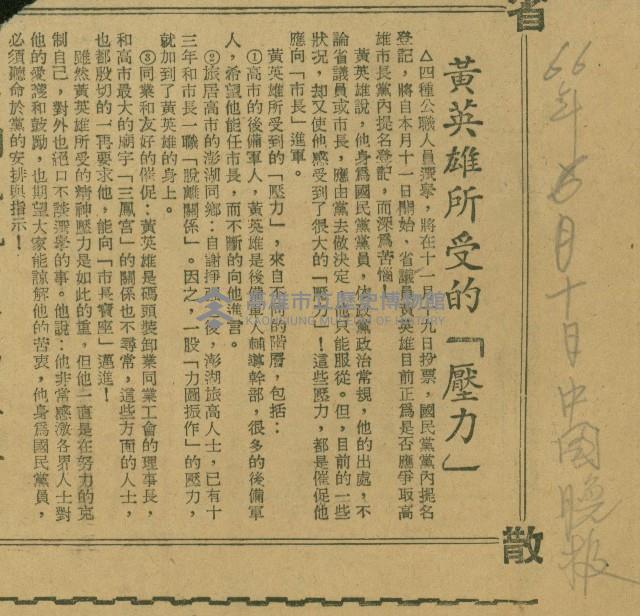 省
散
66年5月十日中國晚报
黃英雄所受的「壓力」
△四種公職人員選舉，將在十一月十九日投票，國民黨黨內提名
登記，將自本月十一日開始，省議員黃英雄目前正爲是否應爭取高
雄市長黨內提名登記，而深爲苦惱！
黃英雄說，他身爲國民黨黨員，依政黨政治常規，他的出處，不
論省議員或市長，應由黨去做決定，他只能服從。但，目前的一些
狀況，却又使他感受到了很大的「壓力」！這些壓力，都是催促他
應向「市長」進軍。
黃英雄所受到的「壓力」，來自不同的階層，包括：
①高市的後備軍人，黃英雄是後備軍人輔導幹部，很多的後備軍
人，希望他能任市長，而不斷的向他進言。
②旅居高市的澎湖同鄉：自謝掙強後，澎湖旅高人士，已有十
三年和市長一職「脫離關係」。因之，一股「力圖振作」的壓力，
就加到了黃英雄的身上。
③同業和友好的催促：黃英雄是碼頭裝卸業同業工會的理事長，
和高市最大的廟宇「三鳳宮」的關係也不尋常，這些方面的人士，
也都殷切的一再要求他，能向「市長寶座」邁進！
雖然黃英雄所受的精神壓力是如此的重，但他一直是在努力的克
制自己，對外也絕口不談選舉的事。他說：他非常感激各界人士對
他的愛護和鼓勵，也期望大家能諒解他的苦衷，他身爲國民黨員，
必須聽命於黨的安排與指示！
高雄市立歷史博物館
KAOHSIUNG MUSEUM OF HISTORY